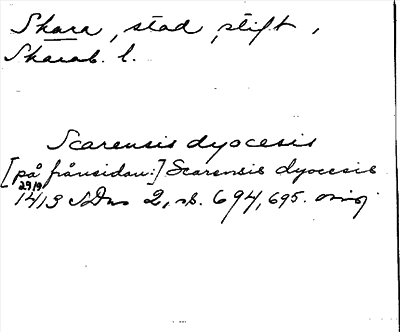 Skara, stad, stift,
Skarab. l.
Scarensis dyocesis
[på frånsidan:] Scarensis dyocesis
29/9
1413 SDns 2, s. 694, 695. orig